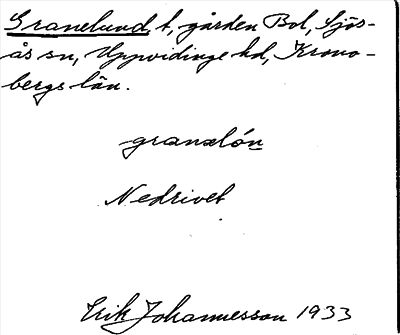 Granelund, t, gården Bol, Sjös-
ås sn, Uppvidinge hd, Krono-
bergs län.
granelón
Nedrivet
Erik Johannesson 1933